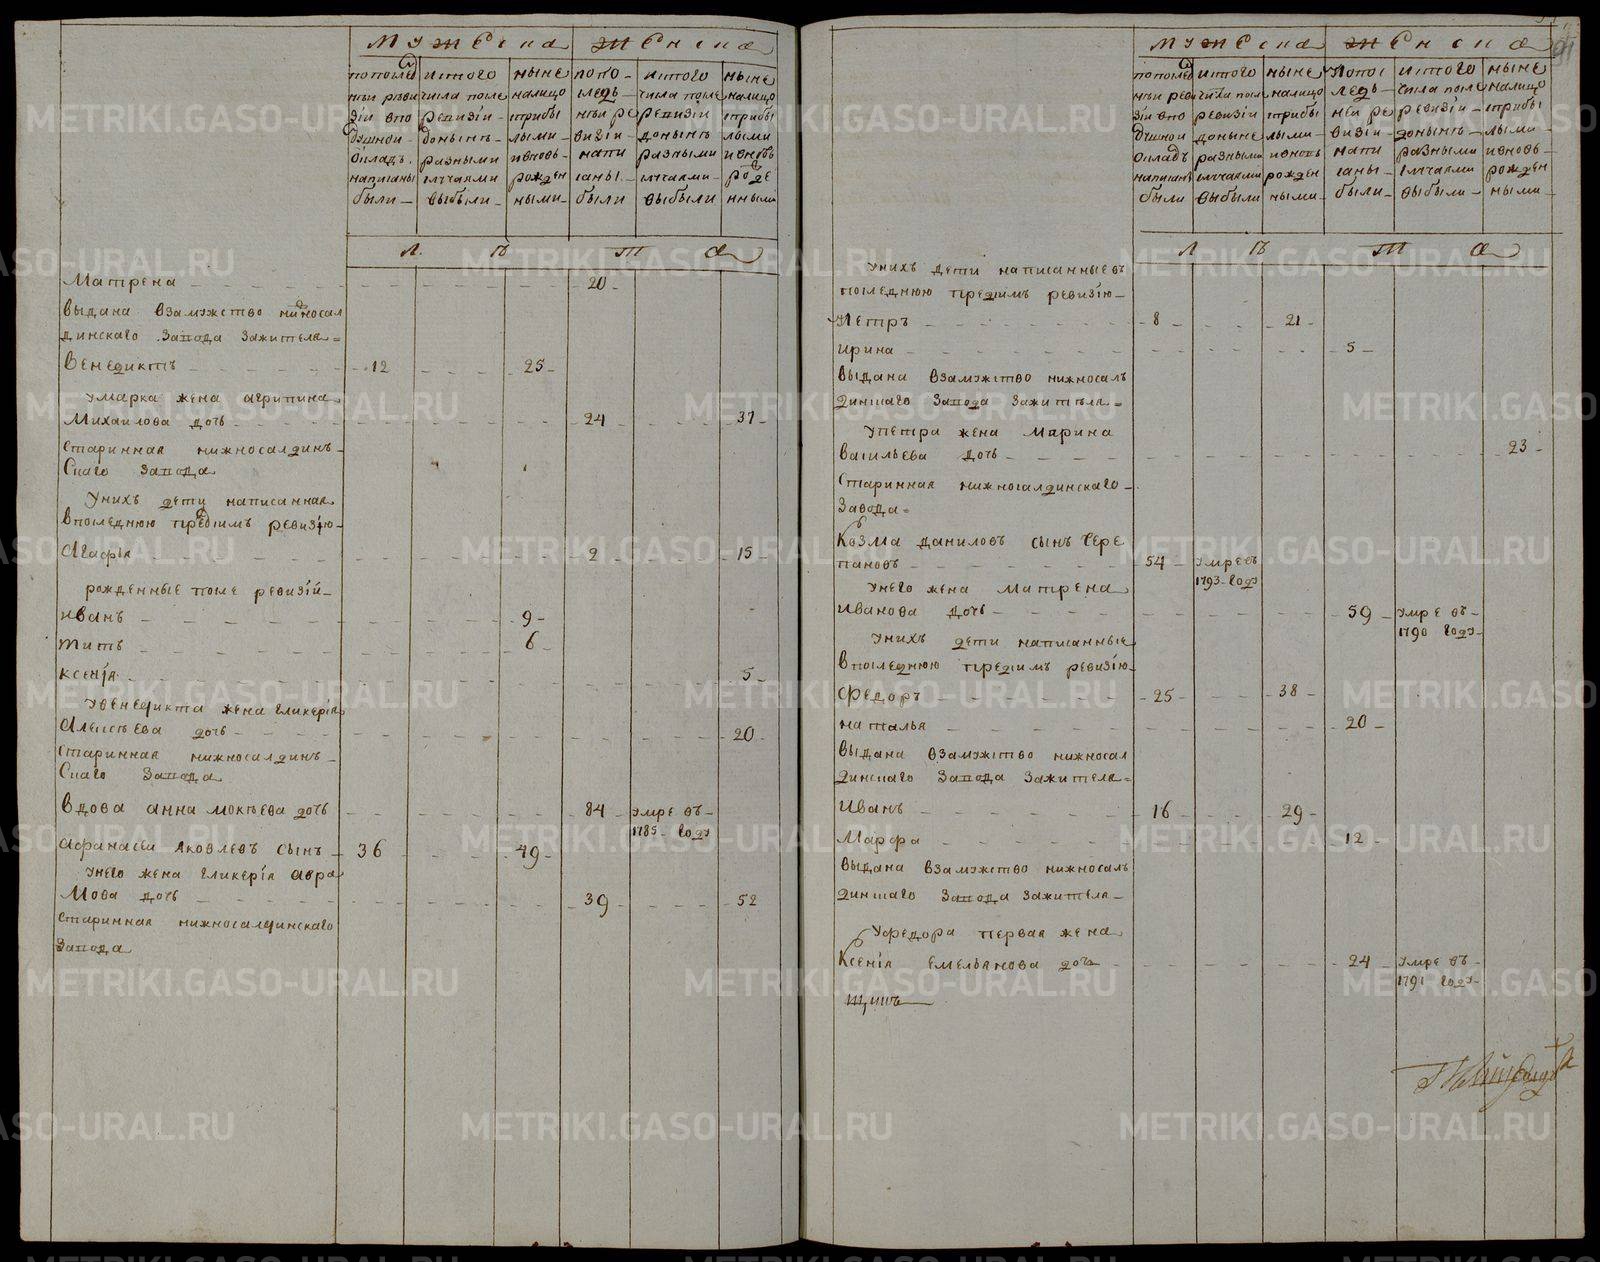 Мужеска
Женска
по последней ревизии в подушной окладъ написаны были
изтого числа после ревизии доныне разными случаями выбыли
ныне налицо с прибылыми и вновь рожденными
по последней ревизии написаны были
изтого числа после ревизии доныне разными случаями выбыли
ныне налицо с прибылыми и вновь рожденными
Лѣта
Матрена 20
выдана взамужство нижносал
динскаго завода зажителя
Венедиктъ 12 25
умарка жена агрипина
Михаилова дочь 24 37
старинная нижносалдинъ
скаго завода
унихъ дети написанная
впоследнюю предсимъ ревизию
Агафья 2 15
рожденные после ревизiи
иванъ 9
титъ 6
ксенiя 5
увенедикта жена гликерiя
Алексѣева дочь 20
старинная нижносалдинъ
скаго завода
вдова анна мокѣева дочь 84 умре въ
1785 году
афанасеи яковлевъ сынъ 36 49
унего жена гликерiя авра
мова дочь 39 52
старинная нижносалдинскаго
завода
Мужеска
Женска
по последней ревизии в подушной окладъ написаны были
изтого числа после ревизии доныне разными случаями выбыли
ныне налицо с прибылыми и вновь рожденными
по последней ревизии написаны были
изтого числа после ревизии доныне разными случаями выбыли
ныне налицо с прибылыми и вновь рожденными
Лѣта
унихъ дети написанные въ
последнюю предсимъ ревизiю
Петръ 8 21
ирина 5
выдана взамужство нижносалъ
динскаго завода зажителя
упетра жена Марина
васильева дочь 23
старинная нижносалдинскаго
завода
Козма даниловъ сынъ Чере
пановъ 54 умре въ
1793 году
унего жена матрена
иванова дочь 59 умре въ
1790 году
унихъ дети написанные
впоследнюю предсимъ ревизiю
Федоръ 25 38
наталья 20
выдана взамужство нижносал
динскаго завода зажителя
Иванъ 16 29
Марфа 12
выдана взамужство нижносалъ
динскаго завода зажителя
уфедора первая жена
Ксенiя емельянова дочь 24 умре въ
1791 году
METRIKI.GASO-URAL.RU